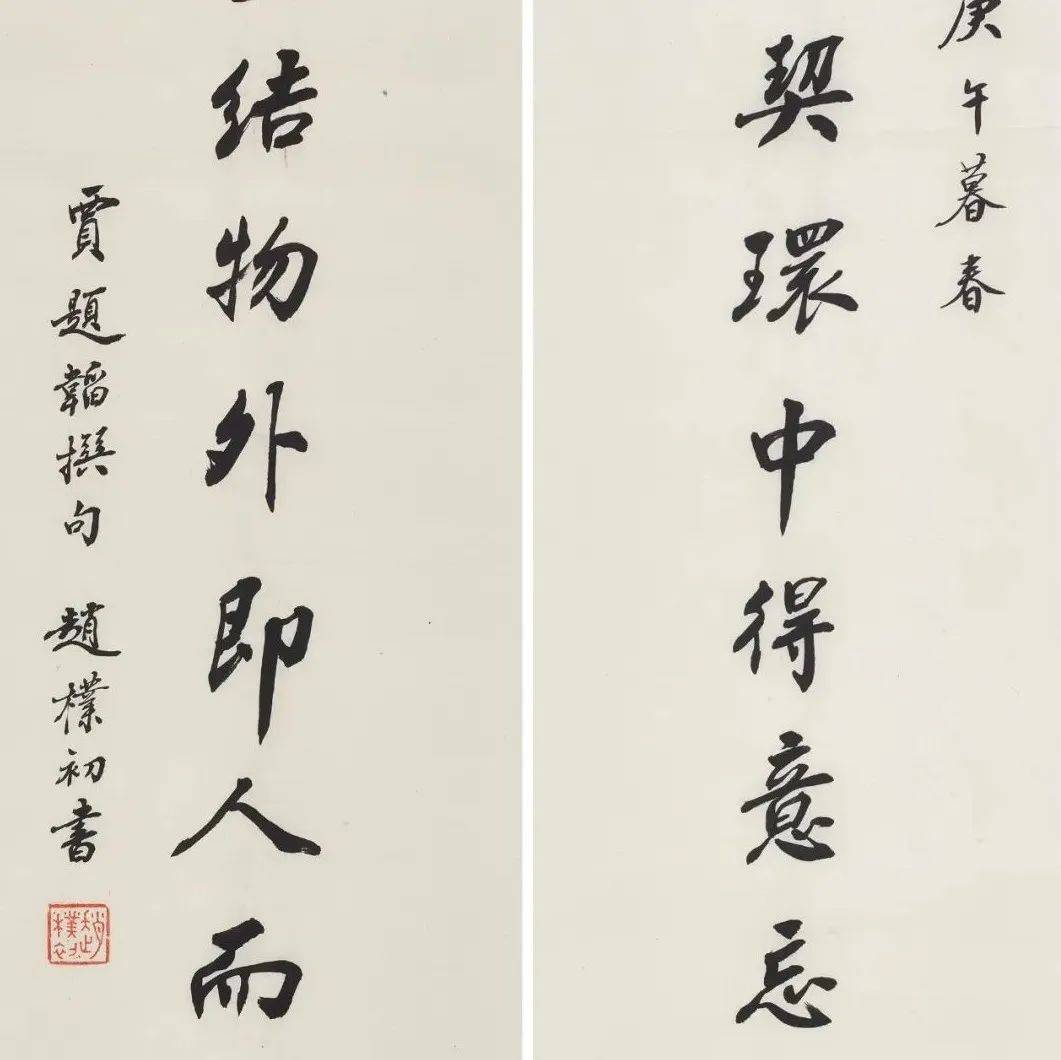 庚午暮春
契環中得意忘
结物外即人而
賈題韜撰句 趙樸初書
趙樸初